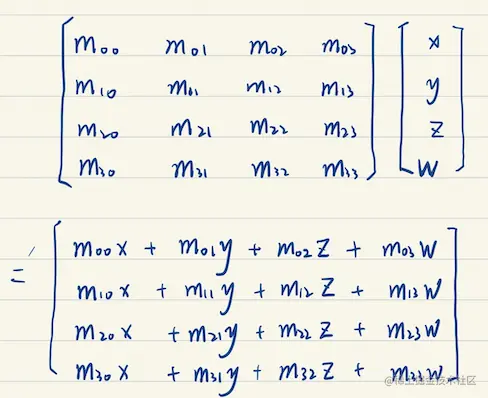 m00 m01 m02 m03 x
m10 m11 m12 m13 y
m20 m21 m22 m23 z
m30 m31 m32 m33 w
= m00x + m01y + m02z + m03w
m10x + m11y + m12z + m13w
m20x + m21y + m22z + m23w
m30x + m31y + m32z + m33w
@稀土掘金技术社区